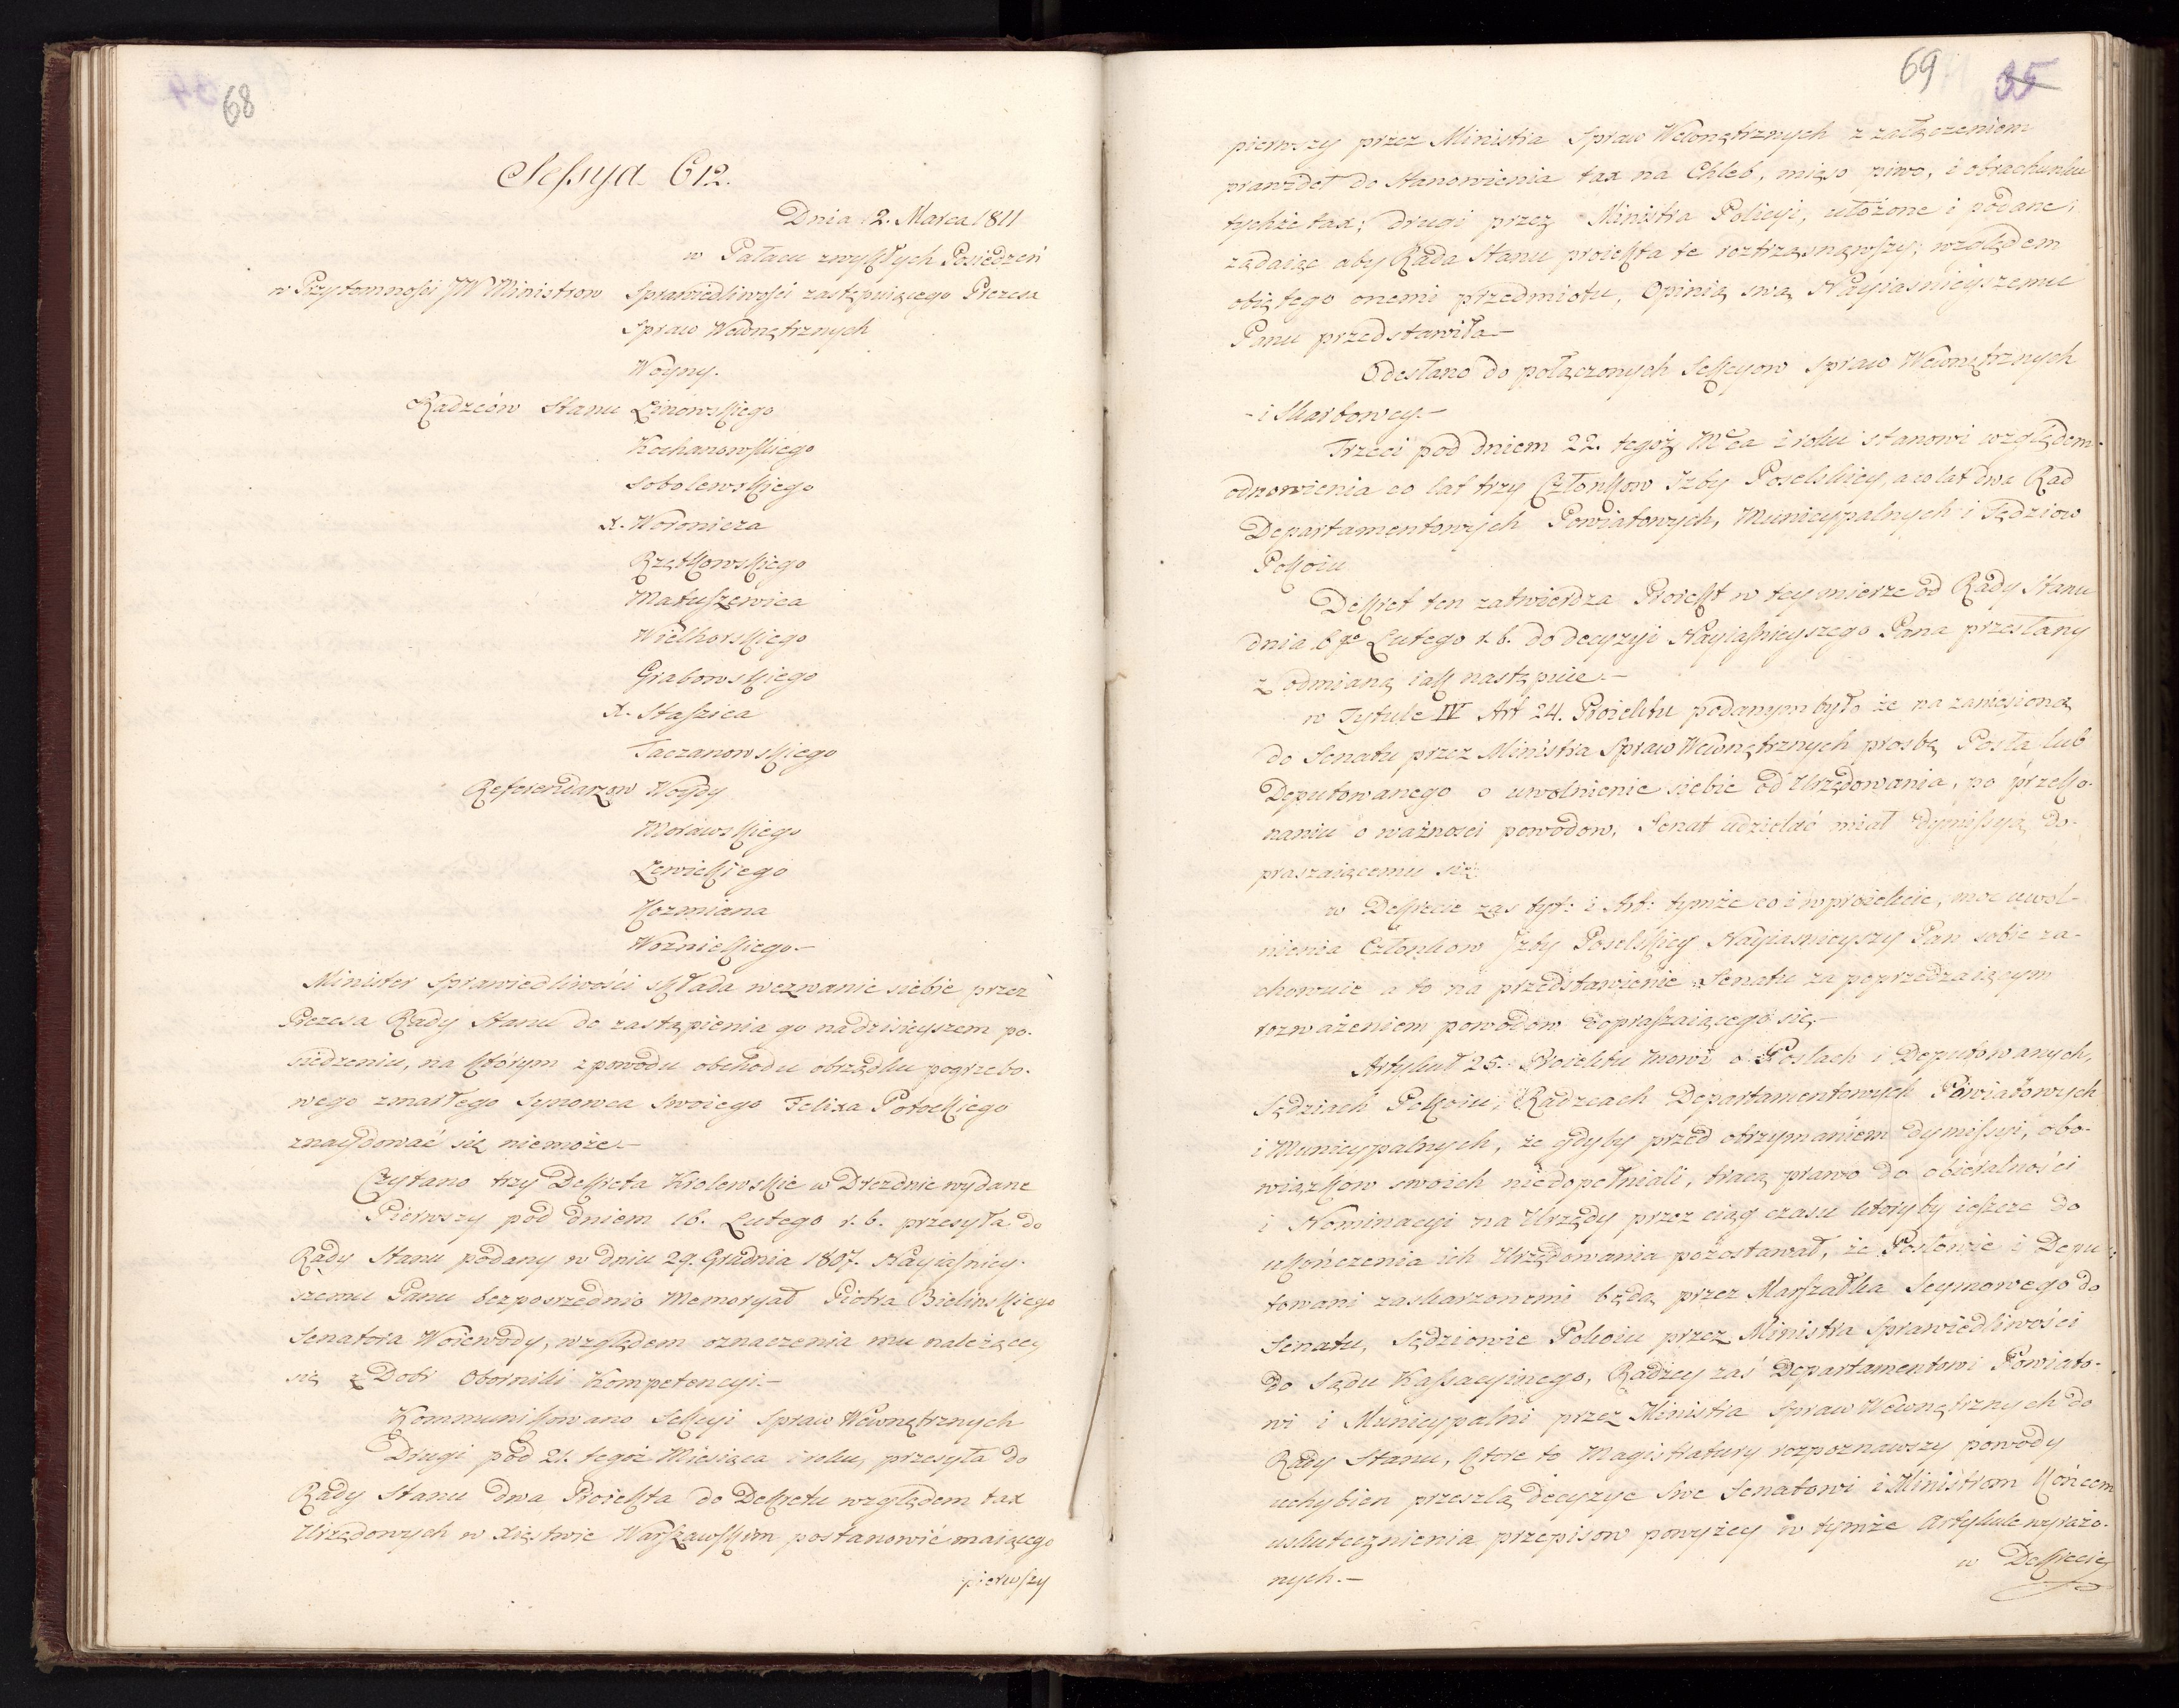 68
Sessya 612.
Dnia 2. Marca 1811
w Pałacu zwykłych Posiedzeń
w Przytomności JW Ministrow Sprawiedliwości zastępuiącego Prezesa
Spraw Wewnętrznych
Woyny.
Radzców Stanu Linowskiego
Kochanowskiego
Sobolewskiego
X. Woronicza
Rzętkowskiego
Matuszewica
Wielhorskiego
Grabowskiego
X. Staszica
Taczanowskiego
Referendarzow Woydy
Morawskiego
Lewickiego
Kozmiana
Woznickiego.–
Minister Sprawiedliwości składa wezwanie siebie przez
Prezesa Rady Stanu do zastąpienia go na dzisieyszem po-
siedzeniu, na którym z powodu obchodu obrządku pogrzebo-
wego zmarłego Synowca swoiego Felixa Potockiego
znaydować się niemoże.–
Czytano trzy Dekreta Krolewskie w Dreznie wydane
Pierwszy pod dniem 16. Lutego r. b. przesyła do
Rady Stanu podany w dniu 29. Grudnia 1807. Nayiaśniey-
szemu Panu bezposrzednio Memoryał Piotra Bielinskiego
Senatora Woiewody, względem oznaczenia mu należącey
się z Dobr Oborniki Kompetencyi.–
Kommunikowano Sekcyi Spraw Wewnętrznych
Drugi pod 21. tegoż Miesiąca i roku, przesyła do
Rady Stanu dwa Proiekta do Dekretu względem tax
Urzędowych w Xięstwie Warszawskim postanowić maiącego
pierwszy
69 35
pierwszy przez Ministra Spraw Wewnętrznych z załączeniem
prawideł do stanowienia tax na Chleb, mięso piwo, i obrachunku
tychże tax; drugi przez Ministra Policyi, ułożone i podane;
żądaiąc aby Rada Stanu proiekta te roztrząsnąwszy, względem
obiętego onemi przedmiotu, Opinią swą Nayiasnieyszemu
Panu przedstawiła.–
Odesłano do połączonych Sekcyow Spraw Wewnętrznych
– i Skarbowey.–
Trzeci pod dniem 22. tegoż Mca i roku stanowi względem
odnowienia co lat trzy Członkow Izby Poselskiey, a co lat dwa Rad
Departamentowych Powiatowych, Municypalnych i Sędziow
Pokoiu
Dekret ten zatwierdza Proiekt w tey mierze od Rady Stanu
dnia 6go Lutego r. b. do decyzyi Nayiaśnieyszego Pana przesłany
z odmianą iak nastąpuie.–
w Tytule IV Art 24. Proiektu podanym było że na zaniesioną
do Senatu przez Ministra Spraw Wewnętrznych prosbę Posła lub
Deputowanego o uwolnienie siebie od Urzędowania, po przeko-
naniu o ważnosci powodow, Senat udzielać miał dymissyą do-
praszaiącemu się.
w Dekrecie zas tyt: i Art: tymże co i w proiekcie, moc uwol-
nienia Członkow Izby Poselskiey Nayiasnieyszy Pan sobie za-
chowuie a to na przedstawienie Senatu za poprzedzaiącym
rozważeniem powodow dopraszaiącego się.–
Artykuł 25. Proiektu mowi o Posłach i Deputowanych,
Sędziach Pokoiu, Radzcach Departamentowych Powiatowych
i Municypalnych, że gdyby przed otrzymaniem dymissyi, obo-
wiązkow swoich niedopełniali, tracą prawo do obieralności
i Nominacyi na Urzędy przez ciąg czasu ktoryby ieszcze do
ukończenia ich Urzędowania pozostawał, że Posłowie i Depu-
towani zaskarzonemi będą przez Marszałka Seymowego do
Senatu, Sędziowie Pokoiu przez Ministra Sprawiedliwości
do Sądu Kassacyinego, Radzcy zaś Departamentowi Powiato-
wi i Municypalni przez Ministra Spraw Wewnętrznych do
Rady Stanu, ktore to Magistratury rozpoznawszy powody
uchybien przeszlą decyzye swe Senatowi i Ministrom końcem
uskutecznienia przepisow powyżey w tymże Artykule wyrażo-
nych.–
w Dekrecie